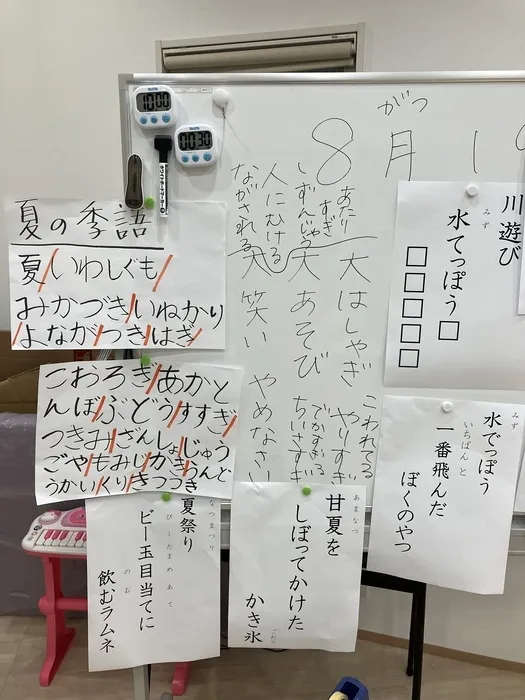 10:00
00:30
がつ
8月1
ホワイトボードマーカー
夏の季語
夏/いわしぐも/
みかづき/いねかり
/よなが/つき/はぎ/
こおろぎ/あかと
んぼ/ぶどう/すすき/
つきみ/ざんしょ/じゅう
ごや/もみじ/かき/うんど
うかい/くり/きつつき
川遊び
みず
水てっぽう□
□□□□□
みず
水でっぽう
いちばん と
一番飛んだ
ぼくのやつ
大はしゃぎ
大あそび
大笑い
あたり
すぎ
しずんじゃう
人にむける
ながされる
こわれてる
やりすぎ
でかすぎる
ちいさすぎ
やめなさい
あまなつ
甘夏を
しぼってかけた
かき氷
ごおり
なつまつり
夏祭り
びーだまめあて
ビー玉目当てに
のむ
飲むラムネ